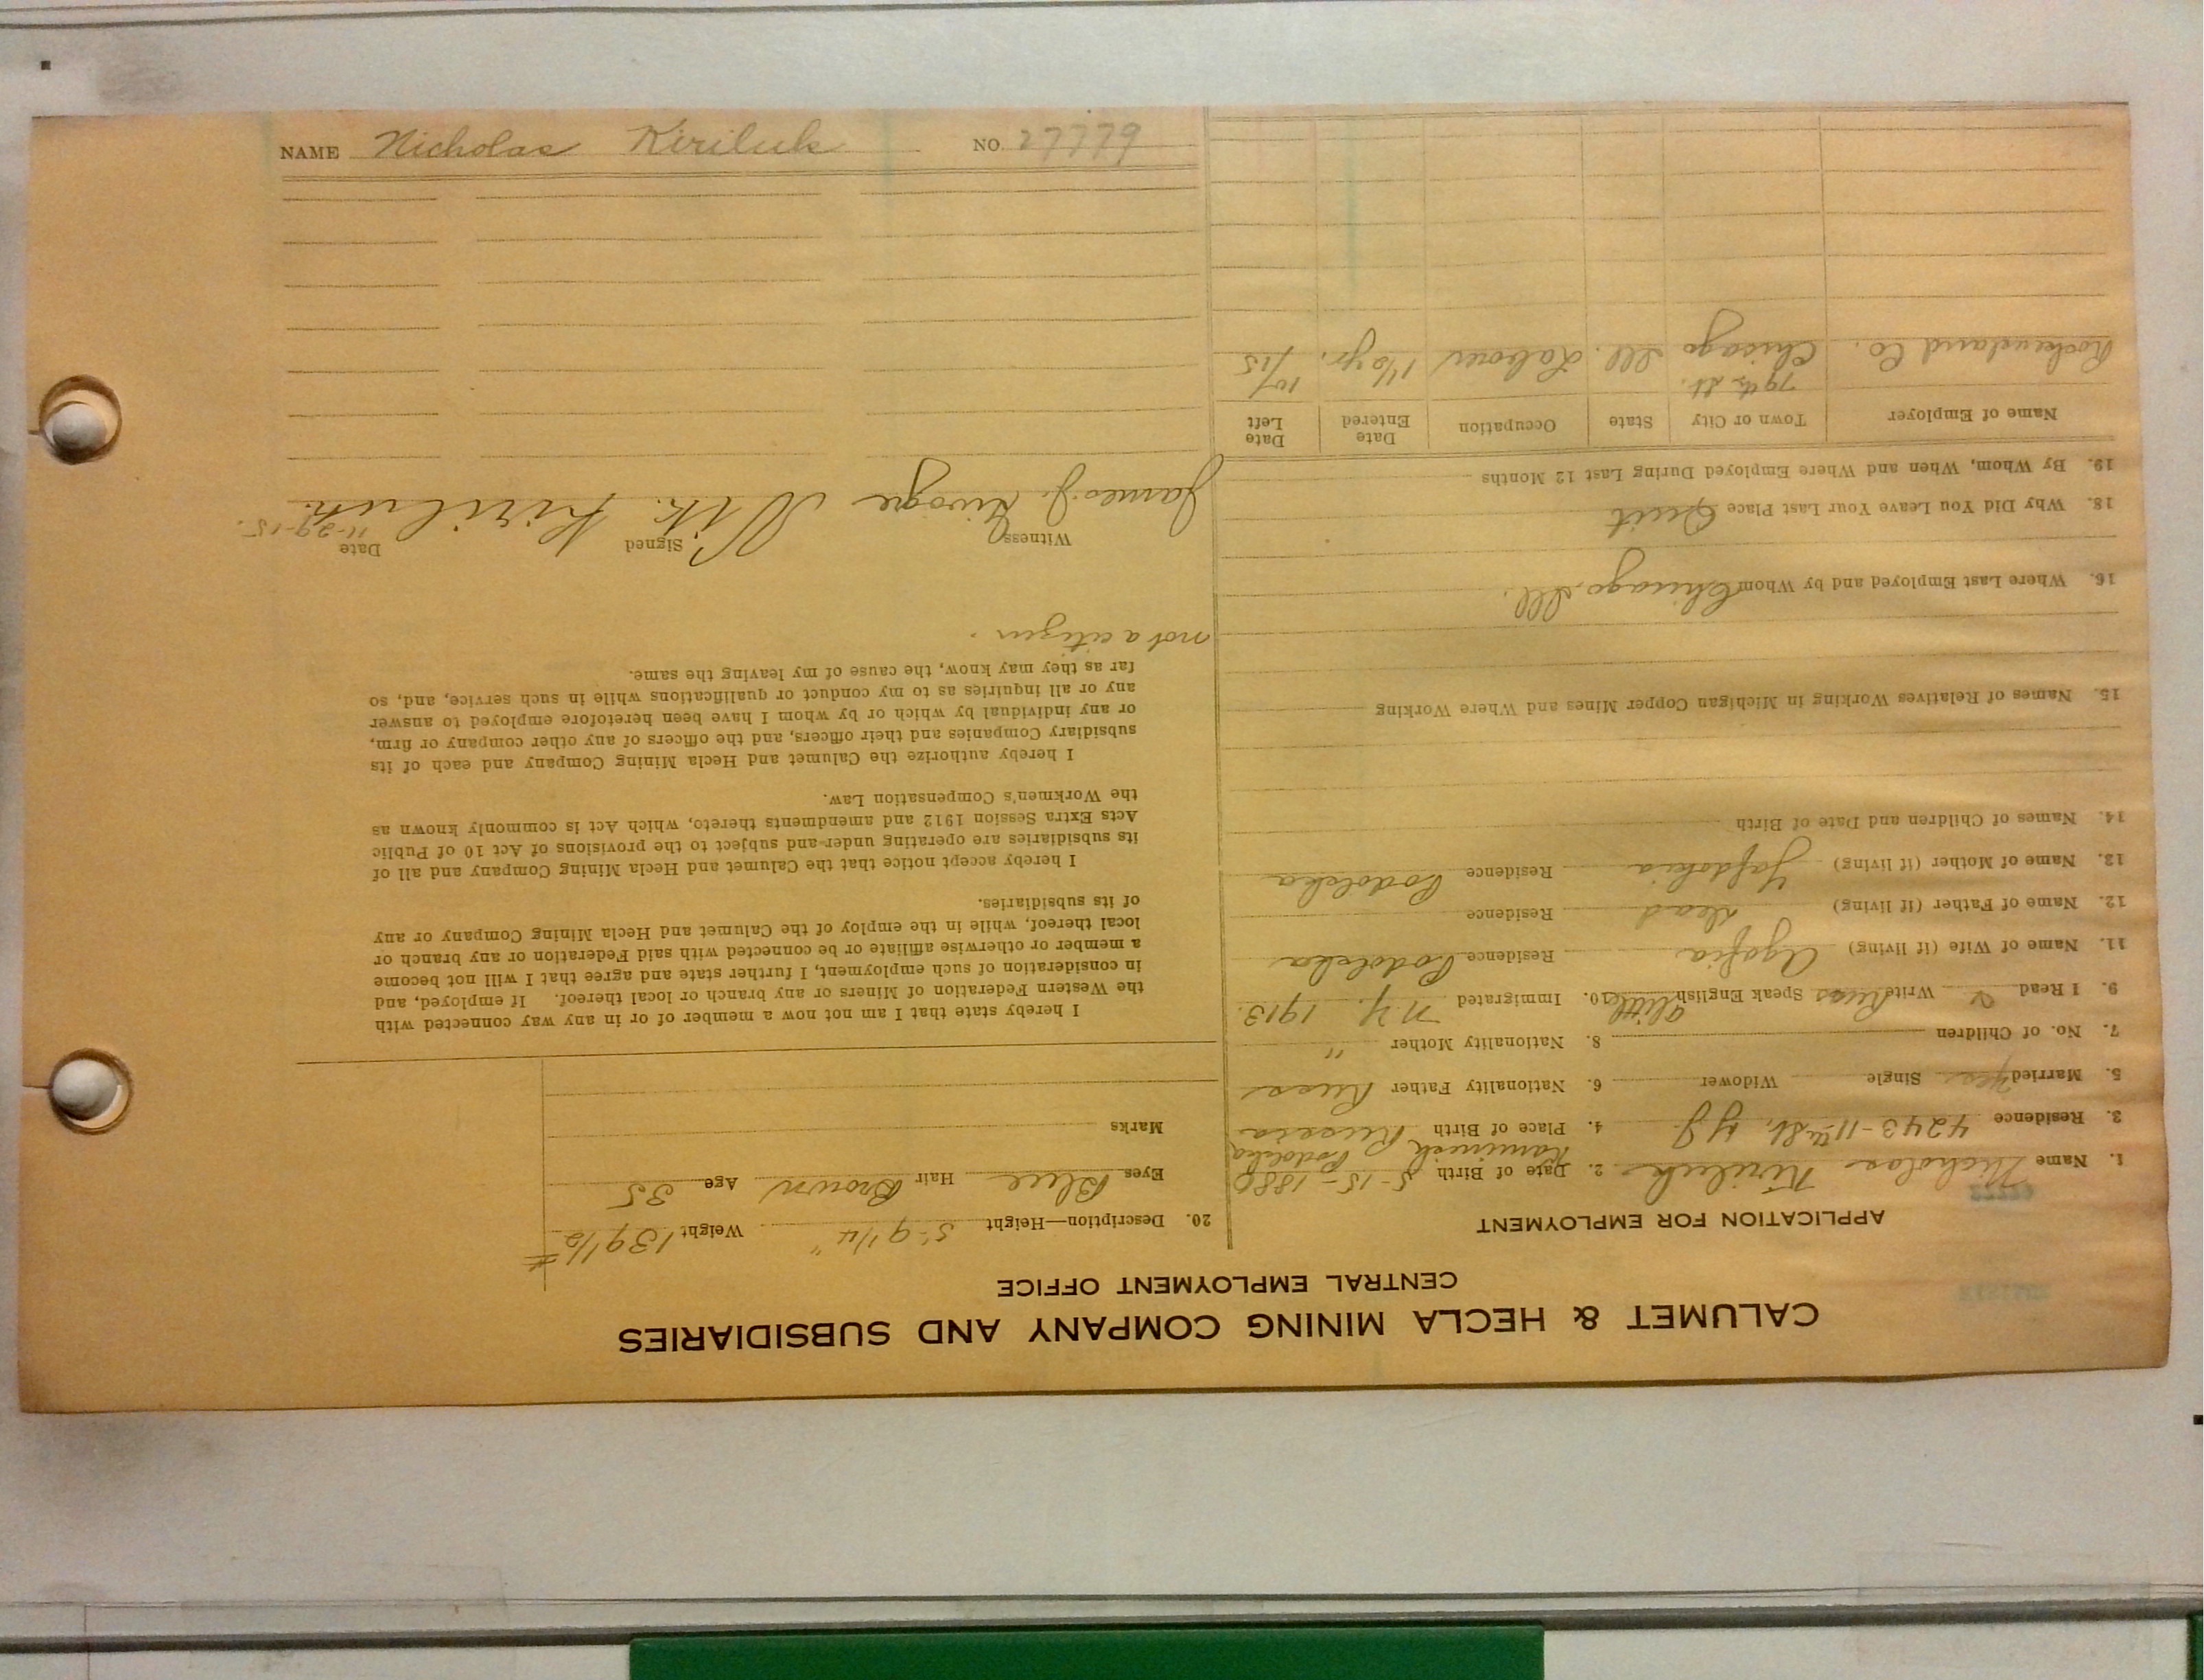 CALUMET & HECLA MINING COMPANY AND SUBSIDIARIES
CENTRAL EMPLOYMENT OFFICE
APPLICATION FOR EMPLOYMENT
1. Name Nicholas Kiriluk 2. Date of Birth 5-15-1880
3. Residence 4243-11th St. 4. Place of Birth Kaminech Podolska Russia
5. Married yes Single Widower 6. Nationality Father Russ
7. No. of Children 8. Nationality Mother "
9. I Read Write Russ Speak English little 10. Immigrated N.Y. 1913.
11. Name of Wife (if living) Agafia Residence Podolska
12. Name of Father (if living) dead Residence
13. Name of Mother (if living) Residence Podolska
14. Names of Children and Date of Birth
15. Names of Relatives Working in Michigan Copper Mines and Where Working
16. Where Last Employed and by Whom Chicago, Ill.
18. Why Did You Leave Your Last Place Quit
19. By Whom, When and Where Employed During Last 12 Months
Name of Employer Town or City State Occupation Date Entered Date Left
79th St. 10/15
Co. Chicago Ill. Laborer 1½ yr.
20. Description—Height 5'-9¼" Weight 139½ #
Eyes Blue Hair Brown Age 35
Marks
I hereby state that I am not now a member of or in any way connected with
the Western Federation of Miners or any branch or local thereof. If employed, and
in consideration of such employment, I further state and agree that I will not become
a member or otherwise affiliate or be connected with said Federation or any branch or
local thereof, while in the employ of the Calumet and Hecla Mining Company or any
of its subsidiaries.
I hereby accept notice that the Calumet and Hecla Mining Company and all of
its subsidiaries are operating under and subject to the provisions of Act 10 of Public
Acts Extra Session 1912 and amendments thereto, which Act is commonly known as
the Workmen's Compensation Law.
I hereby authorize the Calumet and Hecla Mining Company and each of its
subsidiary Companies and their officers, and the officers of any other company or firm,
or any individual by which or by whom I have been heretofore employed to answer
any or all inquiries as to my conduct or qualifications while in such service, and, so
far as they may know, the cause of my leaving the same.
not a citizen.
Witness Signed Date 11-29-15.
James J. Nik. Kiriluk
NAME Nicholas Kiriluk NO. 27779